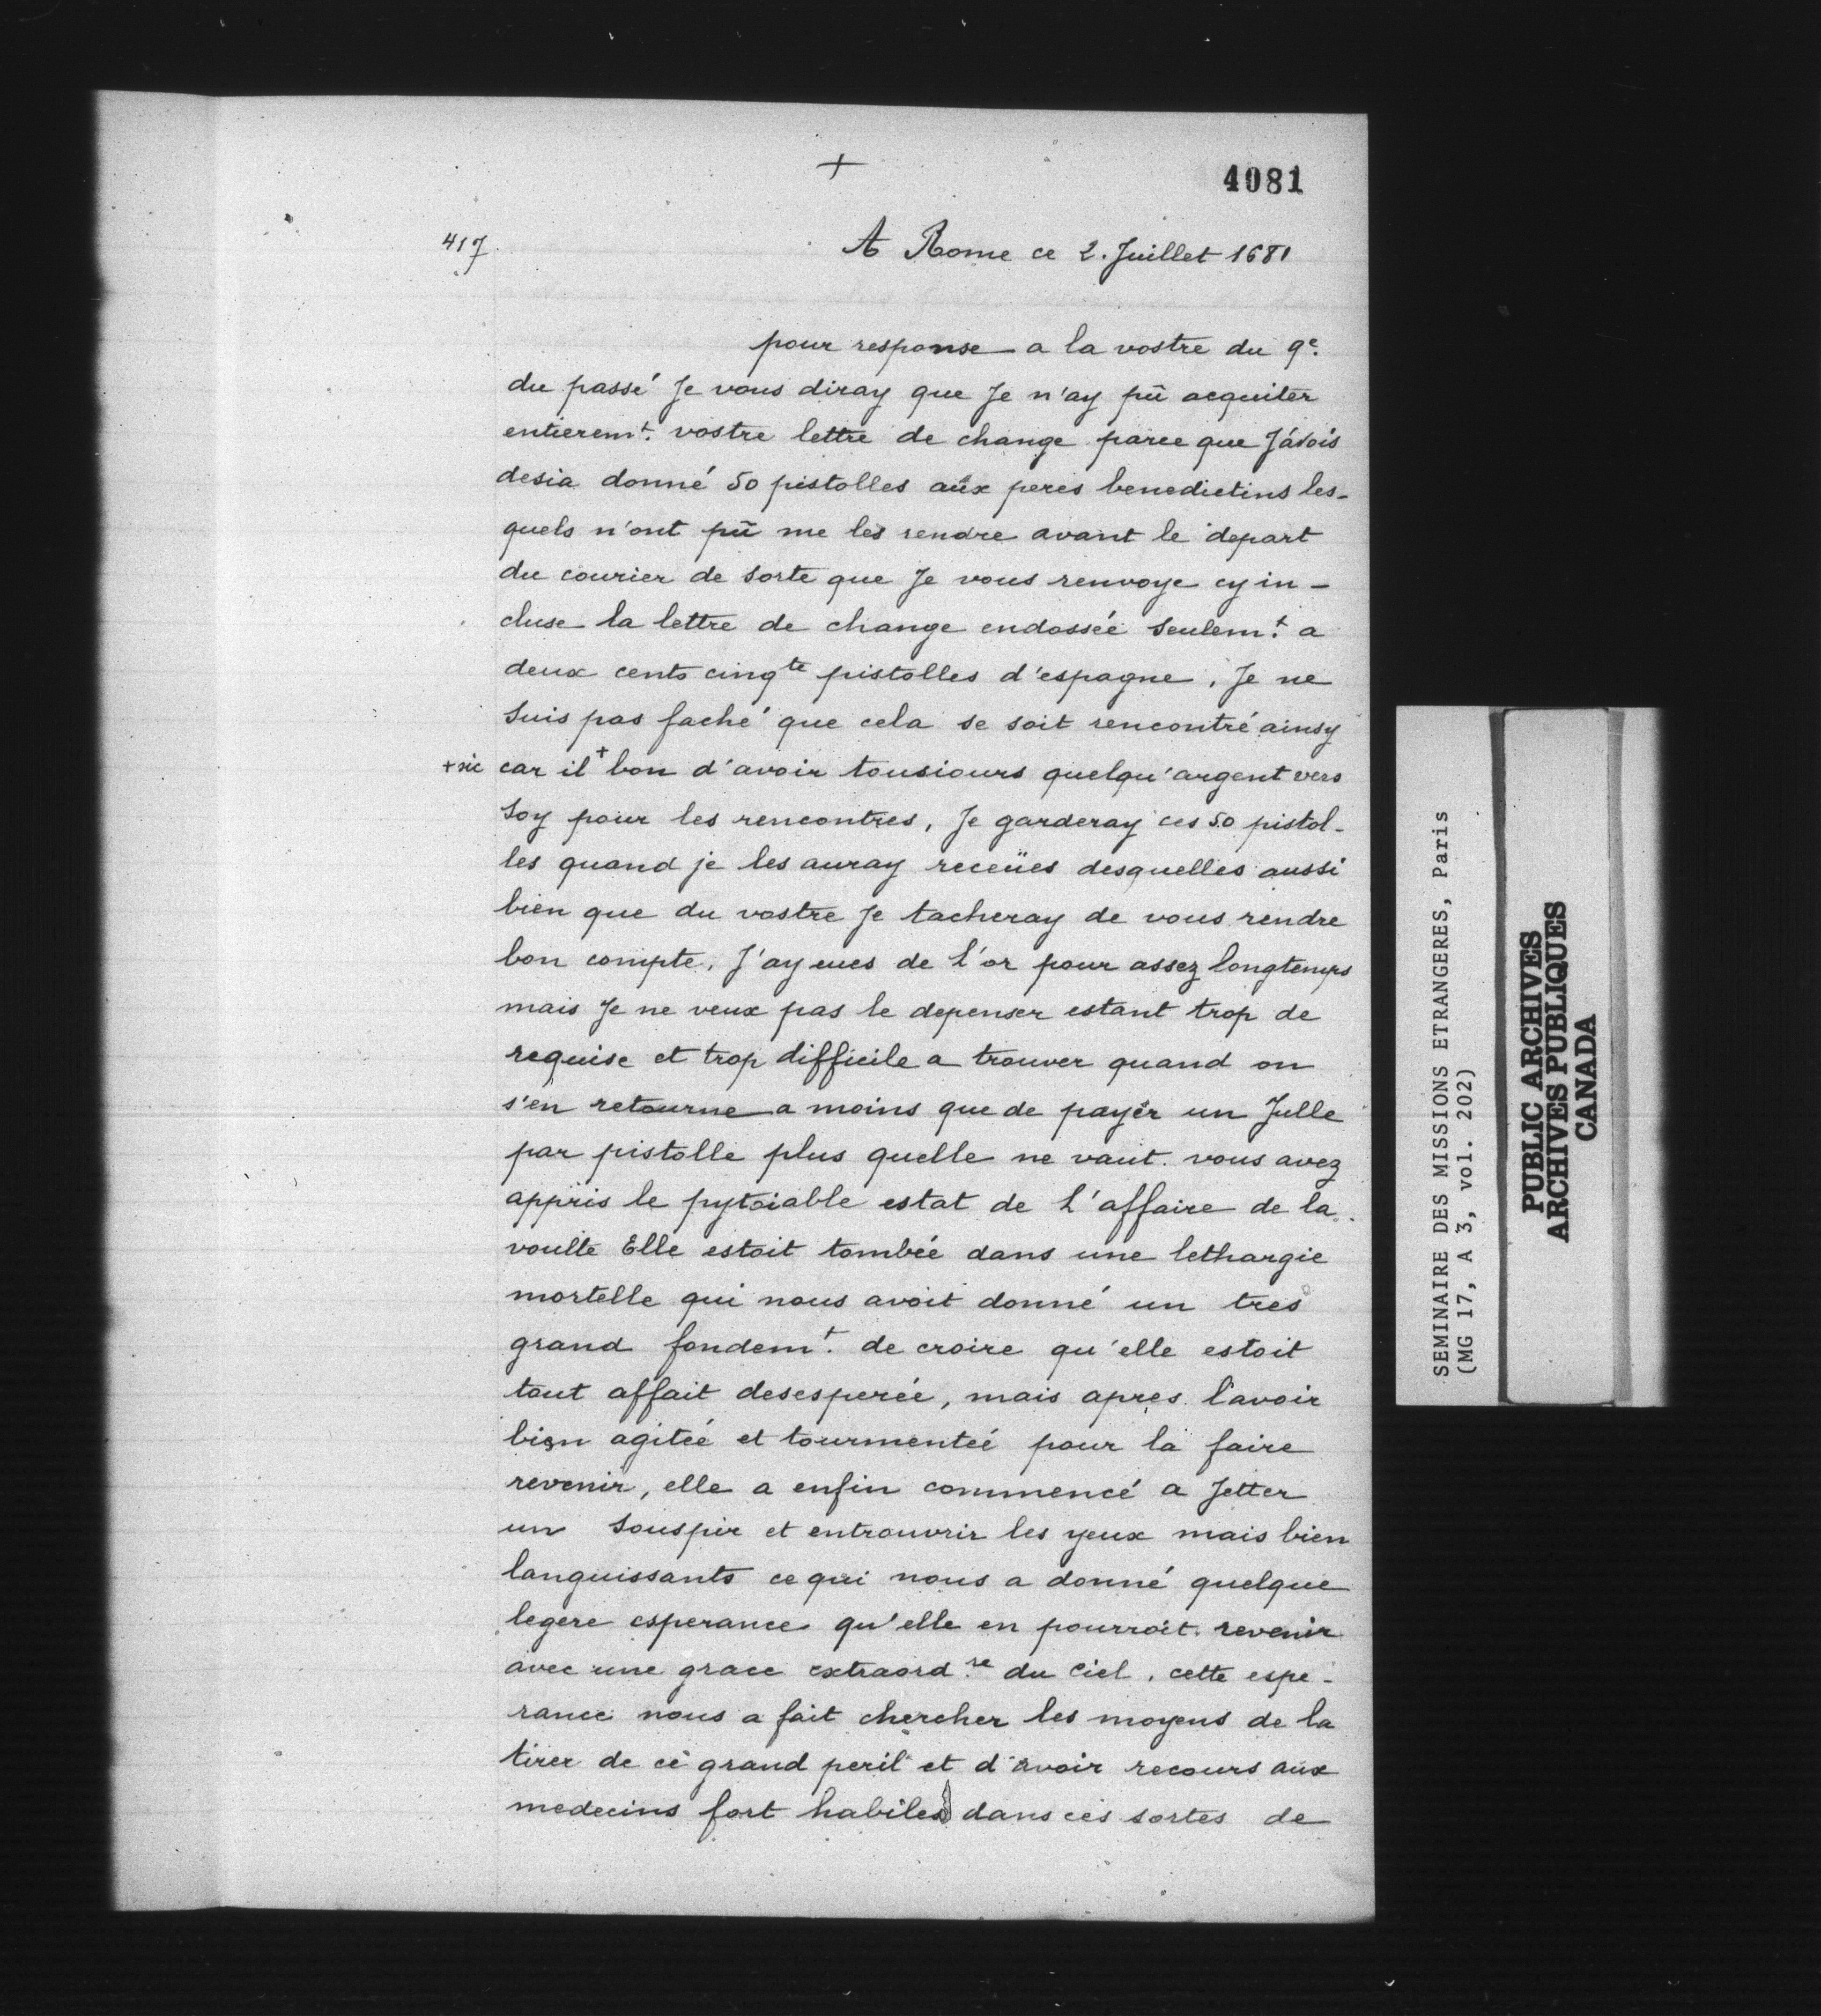 +
4081
417
A Rome ce 2. Juillet 1681
pour response a la vostre du 9e.
du passé Je vous diray que Je n'ay pû acquiter
entieremt. vostre lettre de change parce que J'avois
desia donné 50 pistolles aûx peres benedictins les-
quels n'ont pû me les rendre avant le depart
du courier de sorte que Je vous renvoye cy in-
cluse la lettre de change endosséé seulemt. a
deux cents cinqte pistolles d'espagne, Je ne
suis pas faché que cela se soit rencontré ainsy
+sic car il + bon d'avoir tousiours quelqu'argent vers
soy pour les rencontres, Je garderay ces 50 pistol-
les quand je les auray receües desquelles aussi
bien que du vostre Je tacheray de vous rendre
bon compte, J'ay eues de l'or pour assez longtemps
mais Je ne veux pas le depenser estant trop de
requise et trop difficile a trouver quand on
s'en retourne a moins que de payer un Julle
par pistolle plus quelle ne vaut. vous avez
appris le pytoiable estat de l'affaire de la
voulte Elle estoit tombéé dans une lethargie
mortelle qui nous avoit donné un tres
grand fondemt. de croire qu'elle estoit
tout affait desesperéé, mais apres l'avoir
bien agitéé et tourmentéé pour la faire
revenir, elle a enfin commencé a Jetter
un souspir et entrouvrir les yeux mais bien
languissants ce qui nous a donné quelque
legere esperance qu'elle en pourroit revenir
avec une grace extraordre. du Ciel, cette espe-
rance nous a fait chercher les moyens de la
tirer de ce grand peril et d'avoir recours aux
medecins fort habiles dans ces sortes de
SEMINAIRE DES MISSIONS ETRANGERES, Paris
(MG 17, A 3, vol. 202)
PUBLIC ARCHIVES
ARCHIVES PUBLIQUES
CANADA